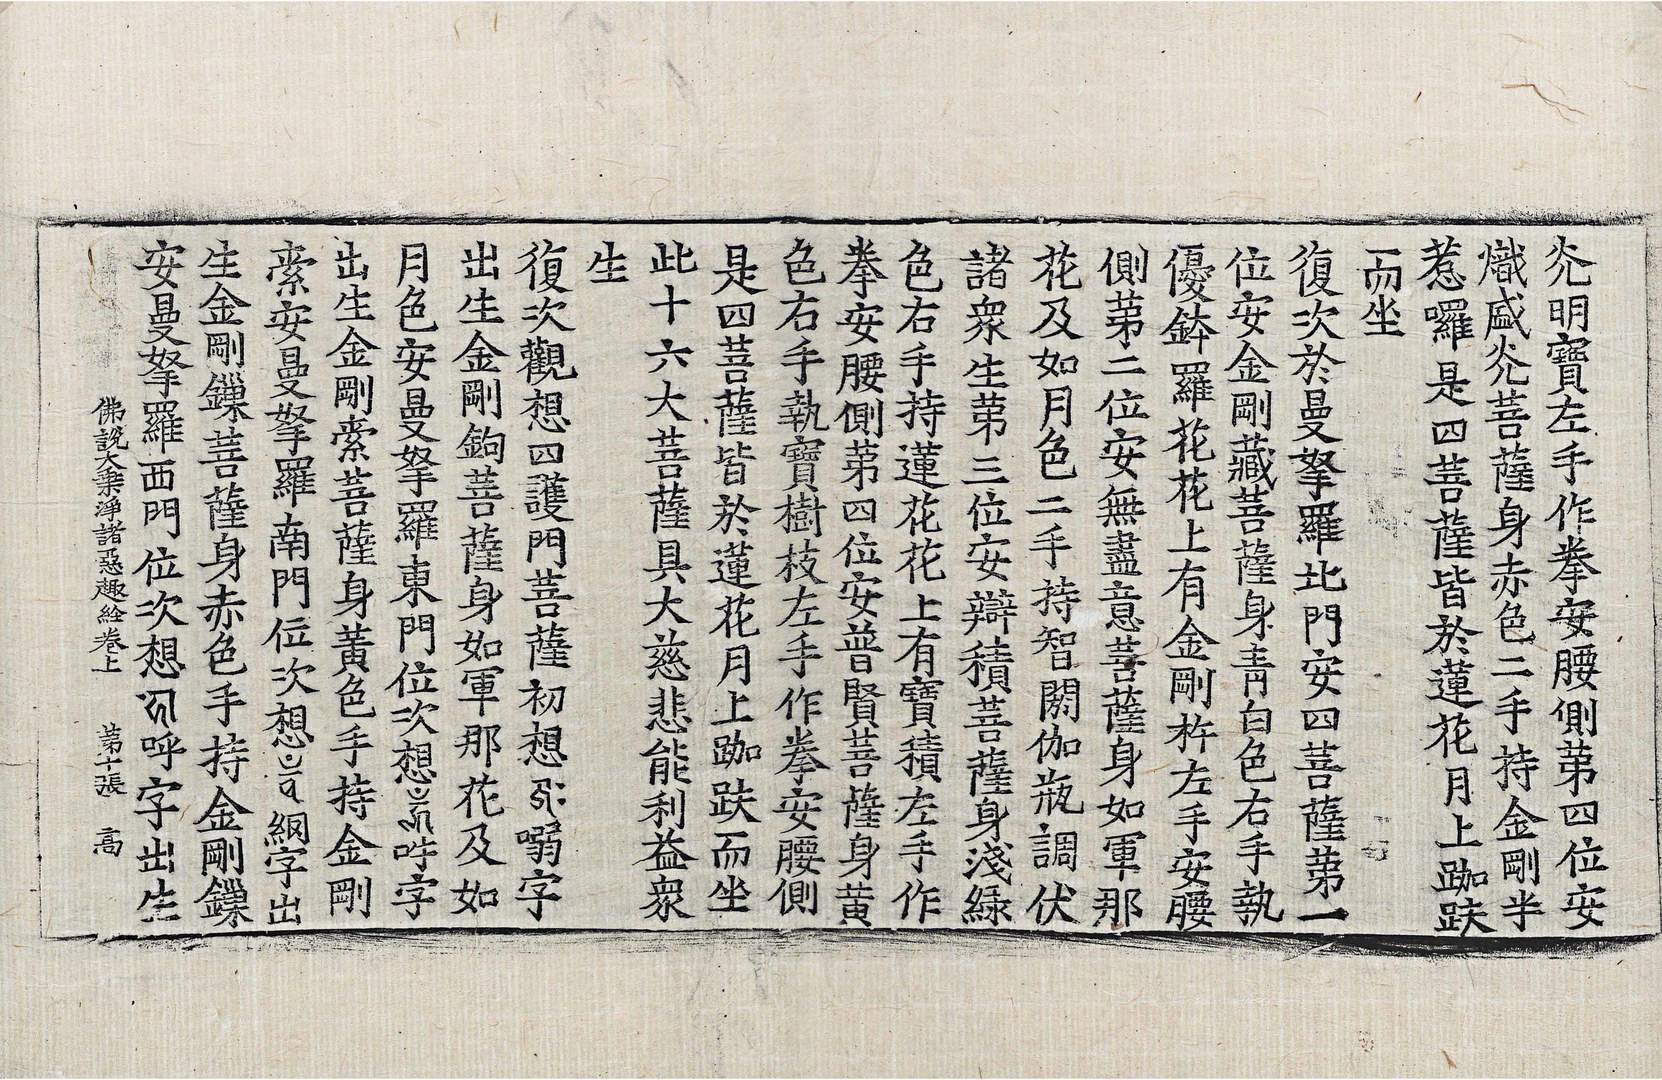 灮明寶左手作拳安腰側苐四位安
熾盛灮菩薩身赤色二手持金剛半
惹囉是四菩薩皆於蓮花月上跏趺
而坐
復次於曼拏羅北門安四菩薩苐一
位安金剛藏菩薩身青白色右手執
優鉢羅花花上有金剛杵左手安腰
側苐二位安無盡意菩薩身如軍那
花及如月色二手持智閼伽瓶調伏
諸衆生苐三位安辯積菩薩身淺緑
色右手持蓮花花上有寶積左手作
拳安腰側苐四位安普賢菩薩身黃
色右手執寶樹枝左手作拳安腰側
是四菩薩皆於蓮花月上跏趺而坐
此十六大菩薩具大慈悲能利益衆
生
復次觀想四護門菩薩初想字
出生金剛鉤菩薩身如軍那花及如
月色安曼拏羅東門位次想吽字
出生金剛索菩薩身黃色手持金剛
索安曼拏羅南門位次想綱字出
生金剛鏁菩薩身赤色手持金剛鏁
安曼拏羅西門位次想呼字出生
佛說大乘淨諸惡趣經卷上 苐十張 高